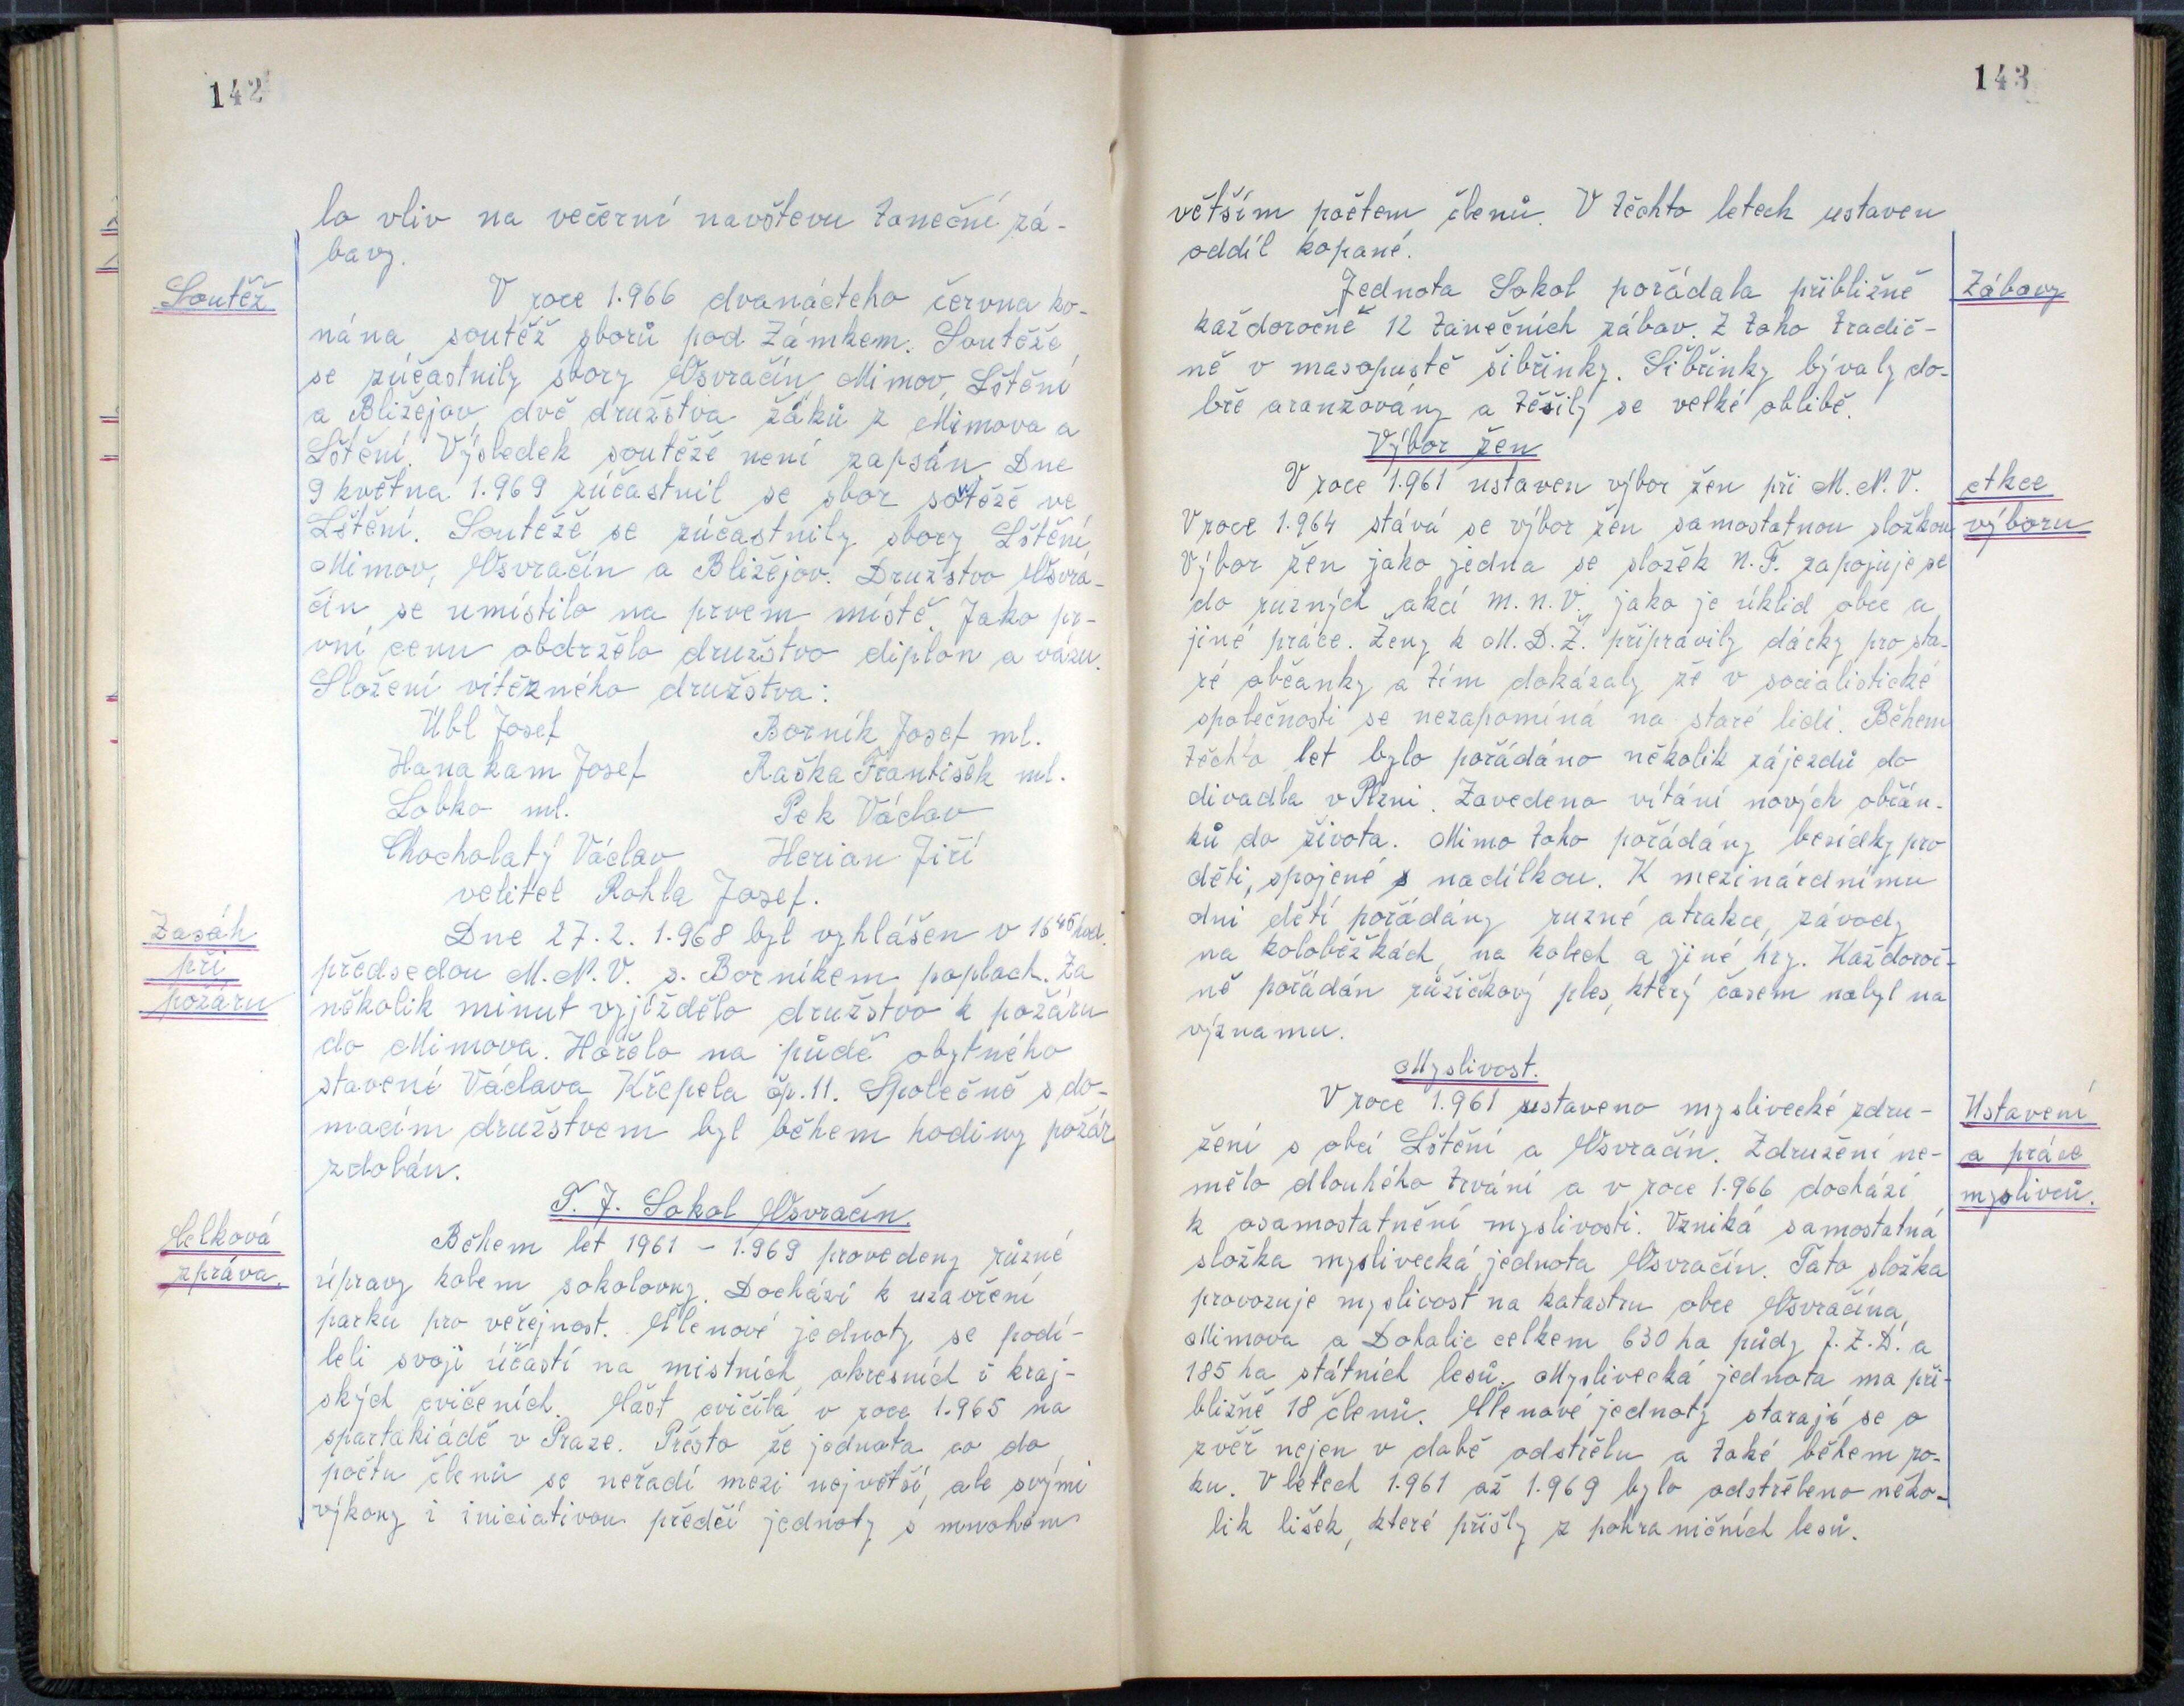 142
lo vliv na večerní navštevu taneční zá-
bavy.
Soutěž
V roce 1.966 dvanácteho června ko-
nána soutěž sborů pod Zámkem. Soutěže
se zúčastnily sbory Osvračín, Mimov, Lštění
a Blížejov, dvě družstva žáků z Mimova a
Lštění. Výsledek soutěže není zapsán. Dne
9 května 1.969 zúčastnil se sbor sotěže ve
Lštění. Soutěže se zúčastnily sbory Lštění,
Mimov, Osvračín a Blížejov. Družstvo Osvra-
čín se umístilo na prvem místě. Jako pr-
vní cenu obdrželo družstvo diplon a vázu.
Složení vítězného družstva:
Übl Josef Borník Josef ml.
Hanakam Josef Raška František ml.
Lobko ml. Pek Václav
Chocholatý Václav Herian Jiří
velitel Rohla Josef.
Zasáh
při
požáru
Dne 27.2. 1.968 byl vyhlášen v 16 45 hod.
předsedou M.N.V. s. Borníkem poplach. Za
několik minut vyjíždělo družstvo k požáru
do Mimova. Hořelo na půdě obytného
stavení Václava Křepela čp. 11. Společně s do-
macím družstvem byl během hodiny požár
zdolán.
T. J. Sokol Osvračín.
Celková
zpráva.
Během let 1961 - 1.969 provedeny různé
úpravy kolem sokolovny. Dochází k uzavření
parku pro veřejnost. Členové jednoty se podí-
leli svojí účastí na mistních, okresních i kraj-
ských cvičeních. Část cvičila v roce 1.965 na
spartakiádě v Praze. Přesto že jednota co do
počtu členů se neřadí mezi největší, ale svými
výkony i iniciativou předčí jednoty s mnohém
143
větším počtem členů. V těchto letech ustaven
oddíl kopané.
Zábavy
Jednota Sokol pořádala přibližně
každoročně 12 tanečních zábav. Z toho tradič-
ně v masopustě šibřinky. Šibřinky bývaly do-
bře aranžovány a těšily se velké oblibě.
Výbor žen
Akce
výboru
V roce 1.961 ustaven výbor žen při M.N.V.
V roce 1.964 stává se výbor žen samostatnou složkou
Výbor žen jako jedna se složek N.F. zapojuje se
do ruzných akcí M.N.V., jako je úklid obce a
jiné práce. Ženy k M.D.Ž. připravily dácky pro sta-
ré občanky a tím dokázaly že v socialistické
společnosti se nezapomíná na staré lidi. Během
těchto let bylo pořádáno několik zájezdů do
divadla v Plzni. Zavedeno vítání nových občán-
ků do života. Mimo toho pořádány besídky pro
děti, spojené s nadílkou. K mezinárdnímu
dni dětí pořádány ruzné atrakce, závody
na koloběžkách, na kolech a jiné hry. Každoroč-
ně pořádán růžičkový ples, který časem nabyl na
významu.
Myslivost.
Ustavení
a práce
myslivců.
V roce 1.961 ustaveno myslivecké zdru-
žení s obcí Lštění a Osvračín. Združení ne-
mělo dlouhého trvání a v roce 1.966 dochází
k osamostatnění myslivosti. Vzniká samostatná
složka myslivecká jednota Osvračín. Tato složka
provozuje myslivost na katastru obce Osvračína,
Mimova a Dohalic celkem 630 ha půdy J.Z.D. a
185 ha státních lesů. Myslivecká jednota ma při-
bližně 18 členů. Členové jednoty starají se o
zvěř nejen v době odstřelu a také během ro-
ku. V letech 1.961 až 1.969 bylo odstřeleno něko-
lik lišek, které přišly z pohraničních lesů.